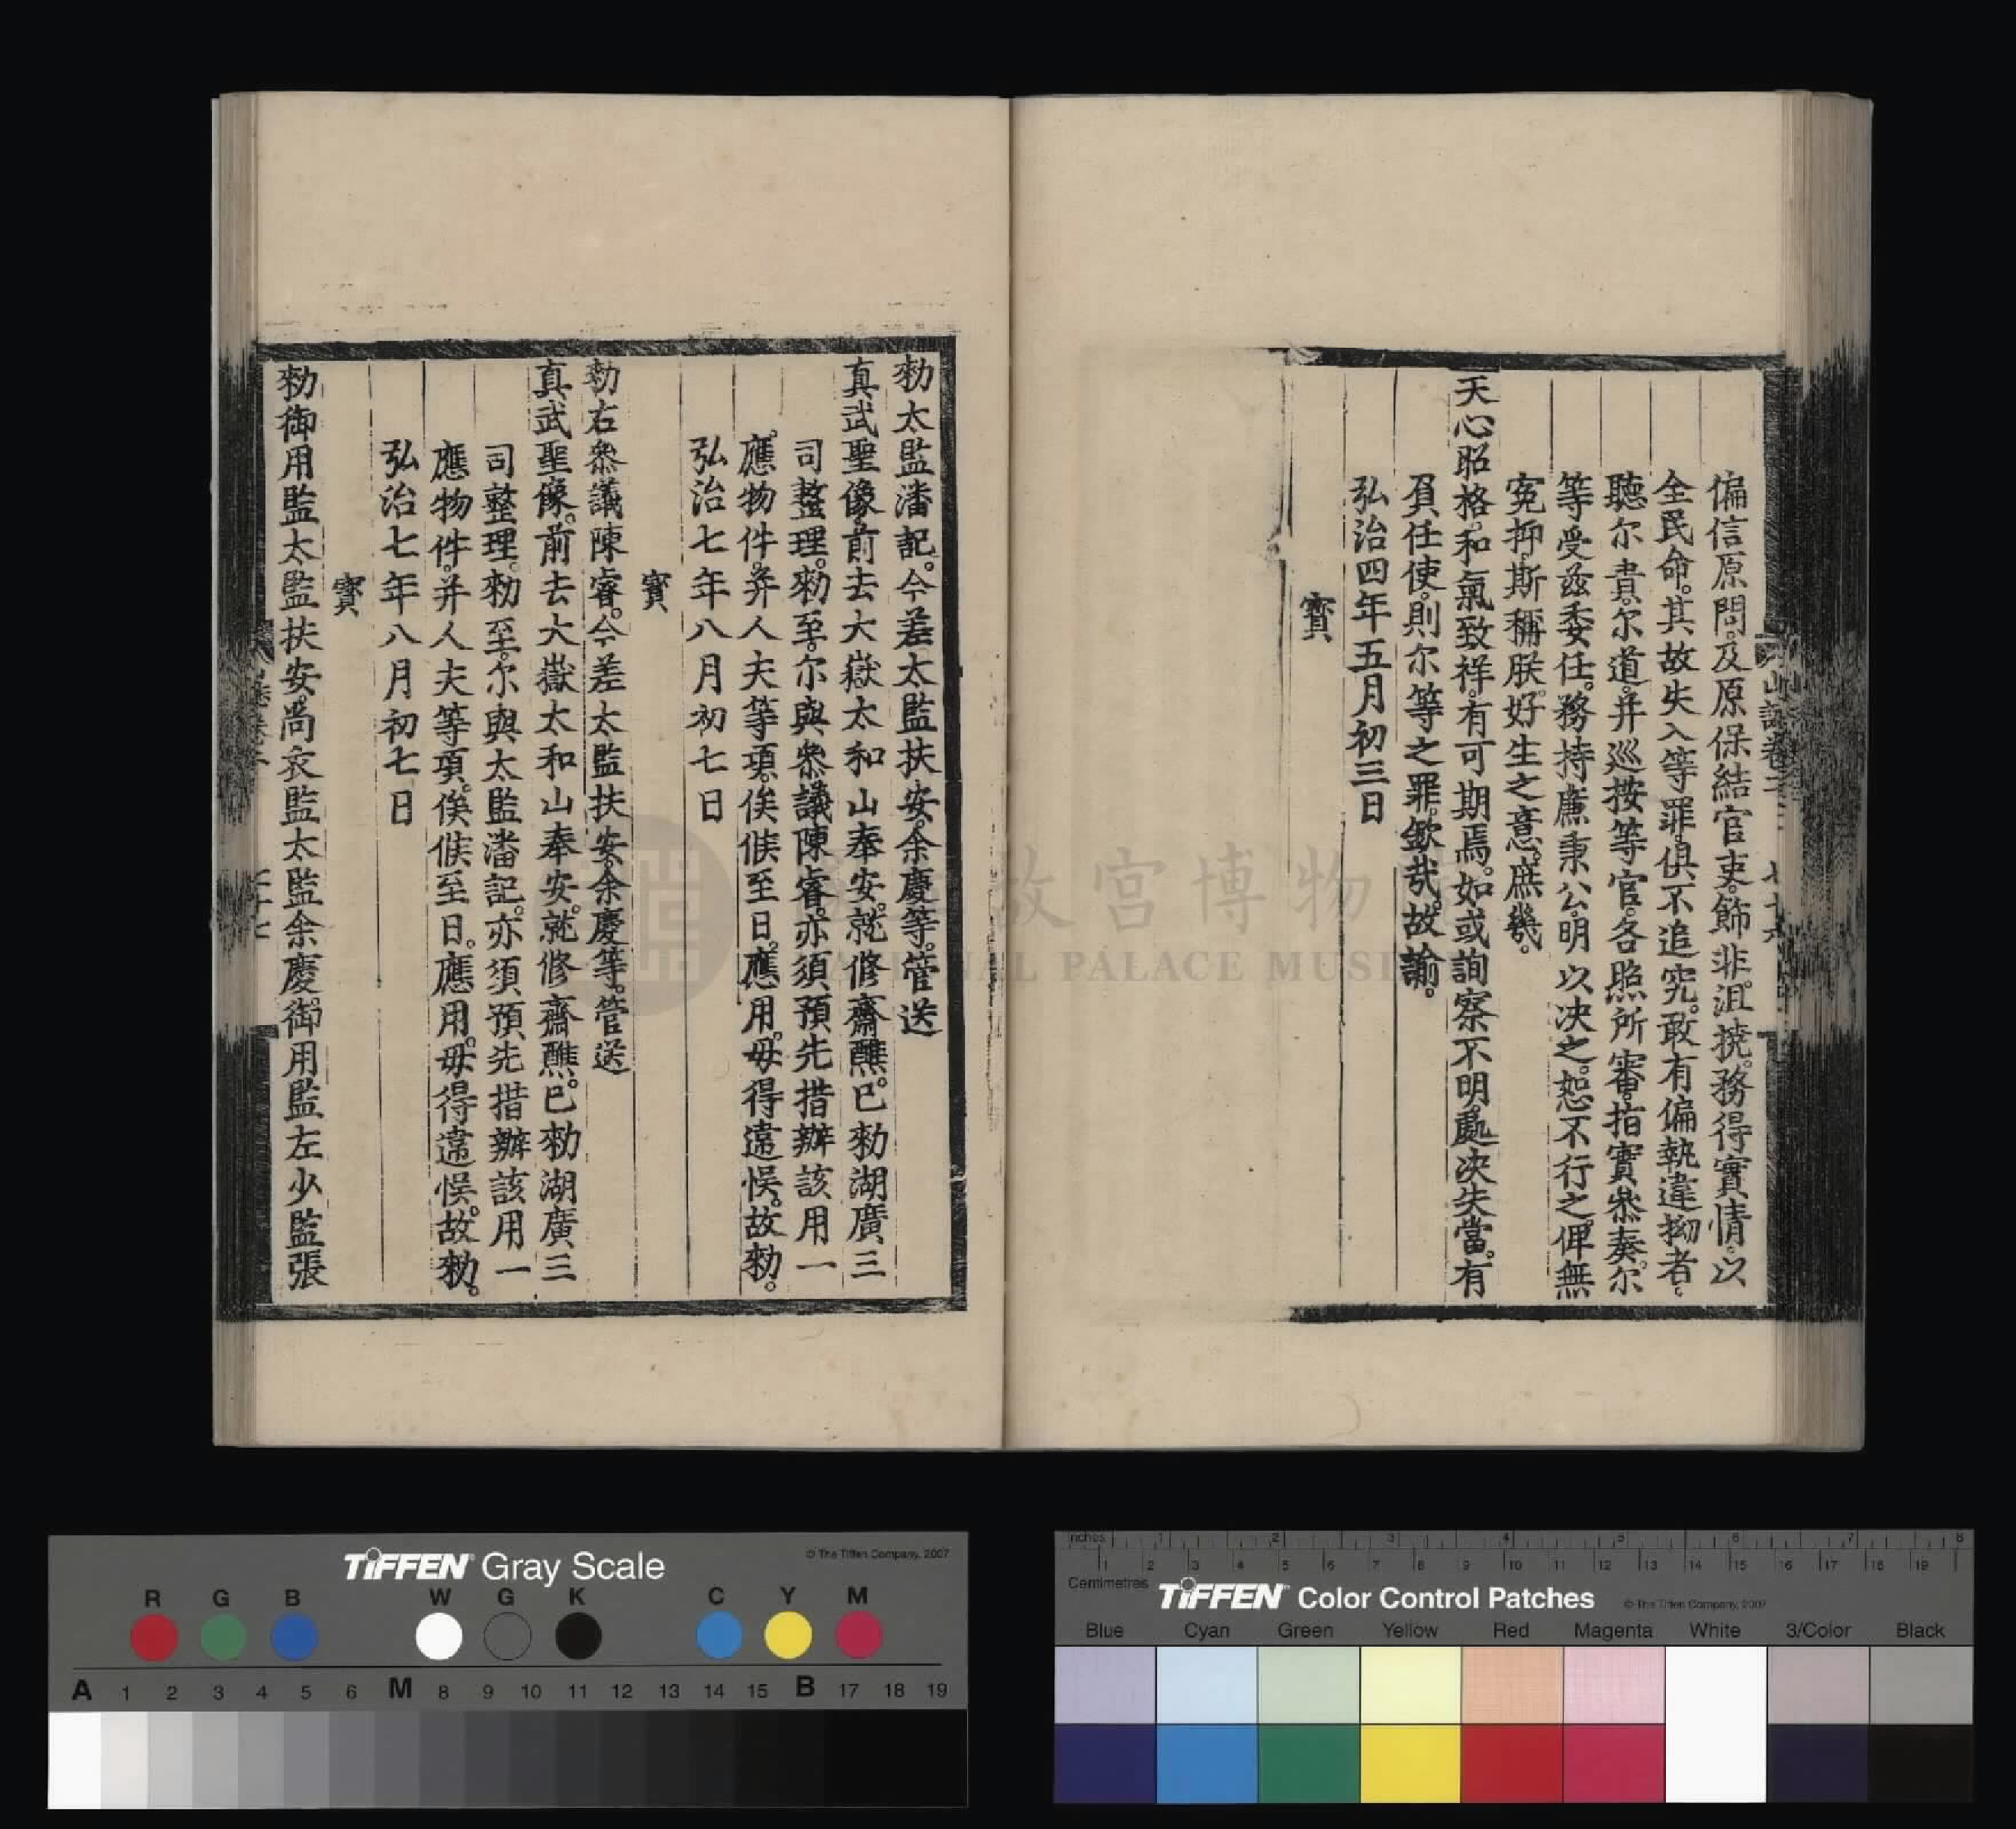 偏信原問。及原保結官吏。飾非沮撓。務得實情。以
全民命。其故失入等罪。俱不追究。敢有偏執違拗者。
聽尔責。尔道。并巡按等官。各照所審。指實叅奏。尔
等受茲委任。務持廉秉公。明以决之。恕不行之。俾無
寃抑。斯稱朕好生之意。庶幾。
天心昭格。和氣致祥。有可期焉。如或詢察不明。處决失當。有
負任使。則尔等之罪。欽哉。故諭。
弘治四年五月初三日
寳
勑太監潘記。今差太監扶安。余慶等。管送
真武聖像。前去大嶽太和山奉安。就修齋醮。已勑湖廣三
司整理。勑至。尔與叅議陳睿。亦須預先措辦該用一
應物件。并人夫等項。俟候至日。應用。毋得違悮。故勑。
弘治七年八月初七日
寳
勑右叅議陳睿。今差太監扶安。余慶等。管送
真武聖像。前去大嶽太和山奉安。就修齋醮。已勑湖廣三
司整理。勑至。尔與太監潘記。亦須預先措辦該用一
應物件。并人夫等項。俟候至日。應用。毋得違悮。故勑。
弘治七年八月初七日
寳
勑御用監太監扶安。尚衣監太監余慶。御用監左少監張
故宮博物
NATIONAL PALACE MUSEUM
TIFFEN Gray Scale
© The Tiffen Company, 2007
R G B W G K C Y M
A 1 2 3 4 5 6 M 8 9 10 11 12 13 14 15 B 17 18 19
inches 1 2 3 4 5 6 7 8
1 2 3 4 5 6 7 8 9 10 11 12 13 14 15 16 17 18 19
Centimetres
TIFFEN Color Control Patches
© The Tiffen Company, 2007
Blue Cyan Green Yellow Red Magenta White 3/Color Black